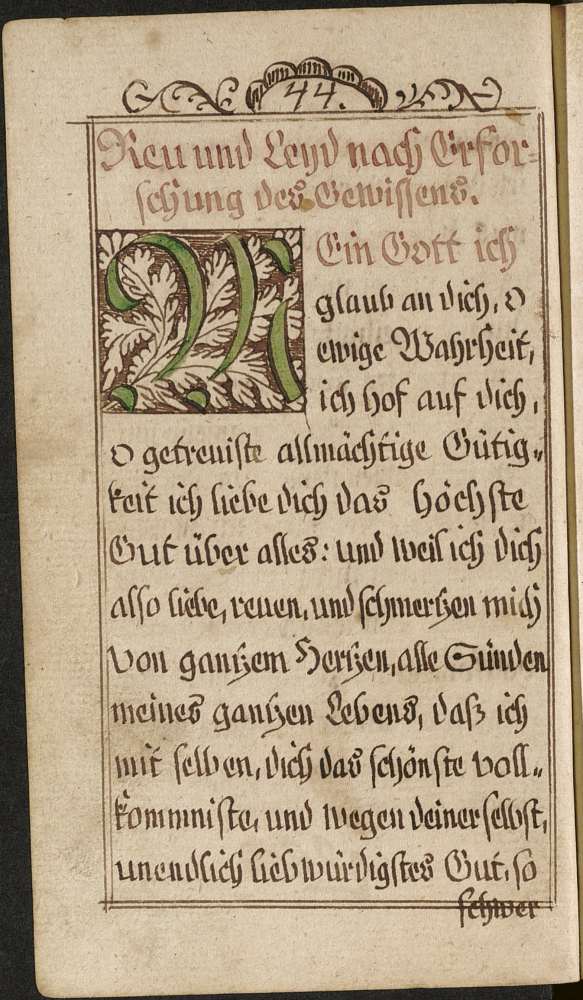 44.
Reu und Leyd nach Erfor=
schung des Gewissens.
Mein Gott ich
glaub an dich, O
ewige Wahrheit,
ich hof auf dich,
O getreuiste allmächtige Gütig„
keit ich liebe dich das höchste
Gut über alles: und weil ich dich
also liebe, reuen, und schmertzen mich
von gantzem Hertzen, alle Sünden
meines gantzen Lebens, daß ich
mit selben, dich das schönste voll„
kommniste, und wegen deiner selbst,
unendlich liebwürdigstes Gut, so
schwer